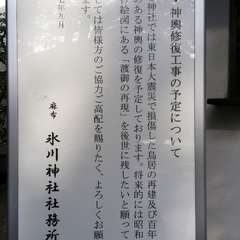 神輿修復工事の予定について
神社では東日本大震災で損傷した鳥居の再建及び百年
のある神輿の修復を予定しております。将来的には昭和
絵図にある「渡御の再現」を後世に残したいと願って
ては皆様方のご協力ご高配を賜りたく、よろしくお願
ます。
年九月
麻布
氷川神社社務所